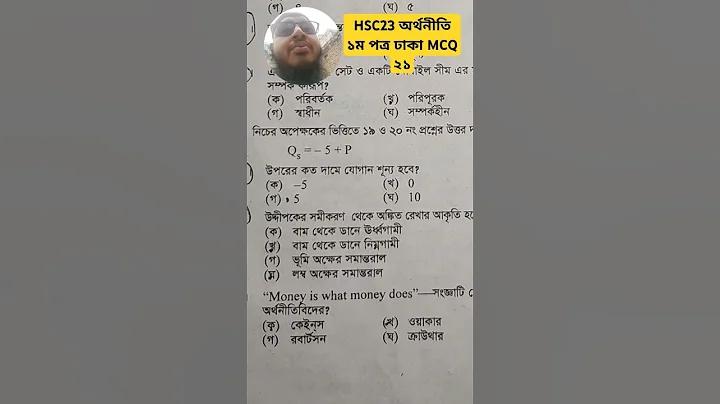 HSC23 অর্থনীতি
১ম পত্র ঢাকা MCQ
২১
(গ)
(ঘ) ৫
সেট ও একটি সীম এর
সম্পর্ক কীরূপ?
(ক) পরিবর্তক
(খ) পরিপূরক
(গ) স্বাধীন
(ঘ) সম্পর্কহীন
নিচের অপেক্ষকের ভিত্তিতে ১৯ ও ২০ নং প্রশ্নের উত্তর
Qs = – 5 + P
উপরের কত দামে যোগান শূন্য হবে?
(ক) –5
(খ) 0
(গ) 5
(ঘ) 10
উদ্দীপকের সমীকরণ থেকে অঙ্কিত রেখার আকৃতি
(ক) বাম থেকে ডানে ঊর্ধ্বগামী
(খ) বাম থেকে ডানে নিম্নগামী
(গ) ভূমি অক্ষের সমান্তরাল
(ঘ) লম্ব অক্ষের সমান্তরাল
“Money is what money does”—সংজ্ঞাটি
অর্থনীতিবিদের?
(ক) কেইন্স
(খ) ওয়াকার
(গ) রবার্টসন
(ঘ) ক্রাউথার